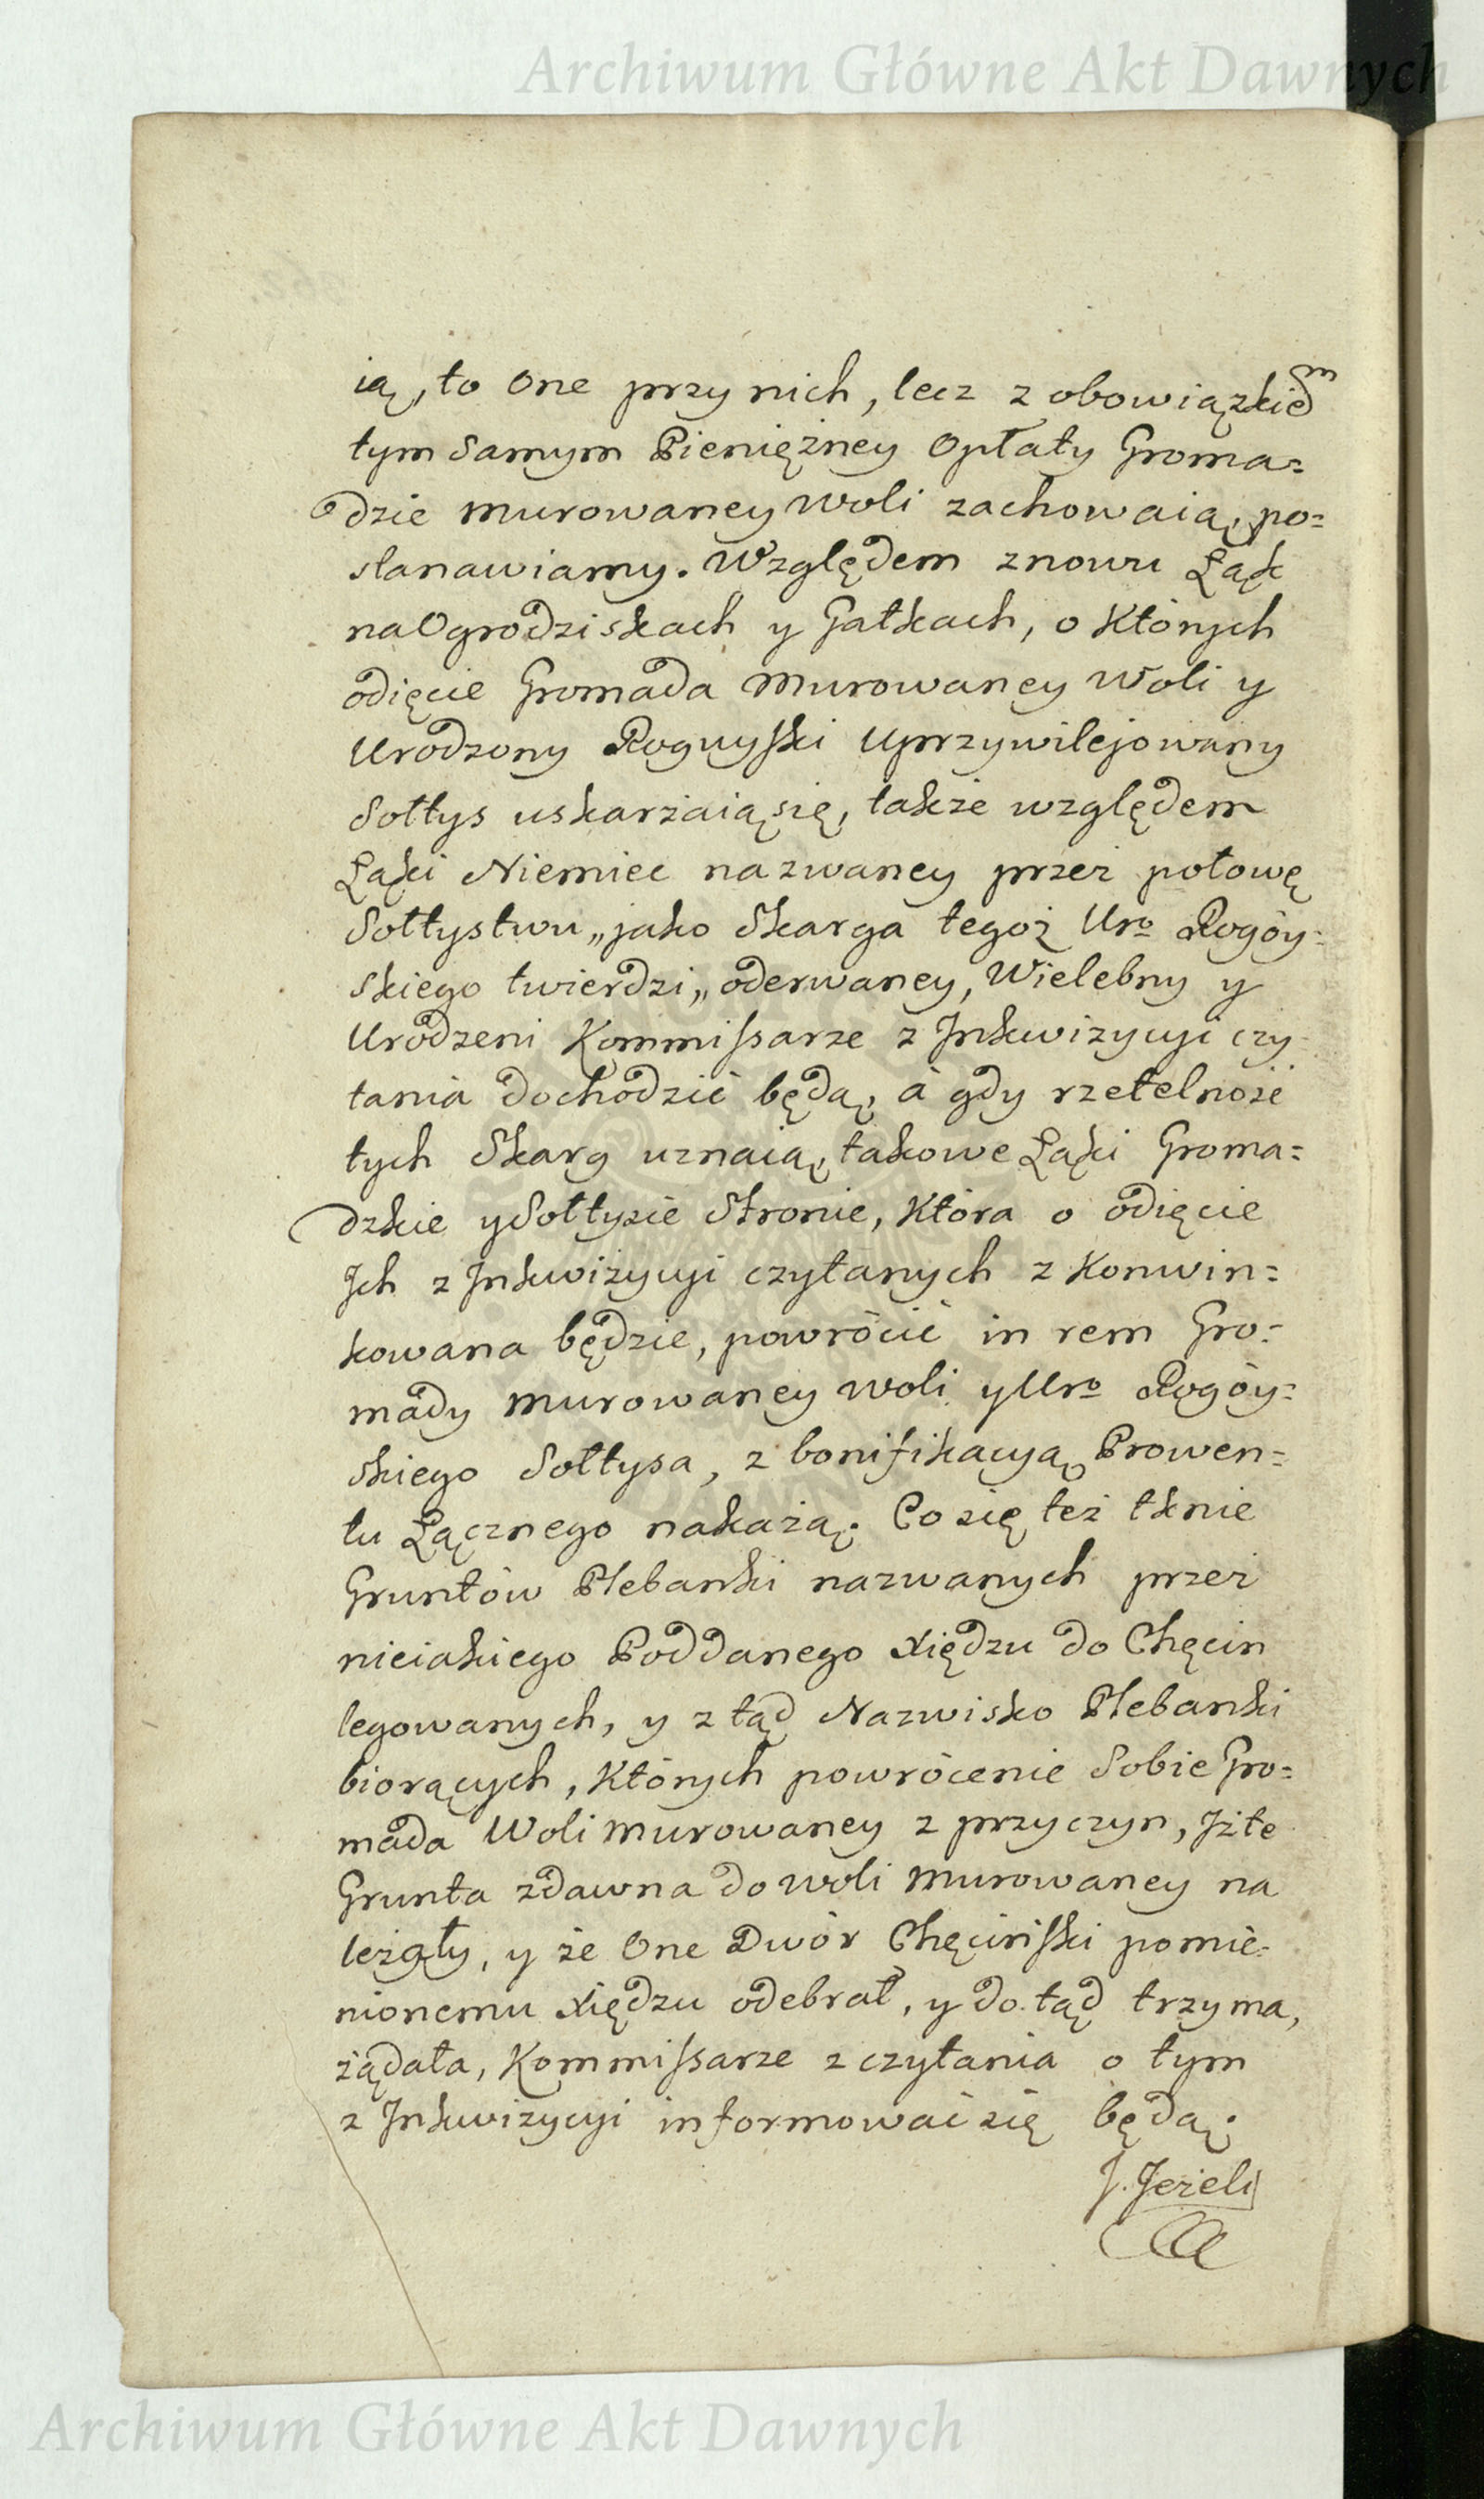 Archiwum Główne Akt Dawnych
ią, to One przy nich, lecz z obowiązkiem
tym Samym Pieniężney Opłaty Groma=
dzie Murowaney Woli zachowaią, po=
stanawiamy. Względem znowu Łąk
na Ogrodziskach y Gałkach, o Których
odięcie Gromada Murowaney Woli y
Urodzony Roguyski Uprzywilejowany
Sołtys uskarżaią się, także względem
Łąki Niemiec nazwaney przez połowę
Sołtystwu „jako Skarga tegoż Uro Rogóy=
skiego twierdzi„ oderwaney, Wielebny y
Urodzeni Kommissarze z Inkwizycyi czy=
tania dochodzić będą, á gdy rzetelność
tych Skarg uznaią, takowe Łąki Groma=
dzkie y Sołtysie Stronie, Która o odięcie
Ich z Inkwizycyi czytanych z Konwin=
kowana będzie, powrócić in rem Gro=
mady Murowaney Woli y Uro Rogóy=
skiego Sołtysa, z bonifikacyą Prowen=
tu Łącznego nakażą. Co się też tknie
Gruntów Plebanki nazwanych przez
nieiakiego Poddanego Xiędzu do Chęcin
legowanych, y z tąd Nazwisko Plebanki
biorących, Których powrócenie Sobie Gro=
mada Woli Murowaney z przyczyn, Iż te
Grunta zdawna do Woli Murowaney na
leżały, y że One Dwór Chęciński pomie=
nionemu Xiędzu odebrał, y do tąd trzyma,
żądała, Kommissarze z czytania o tym
z Inkwizycyi informować się będą.
J. Jeżeli
Archiwum Główne Akt Dawnych